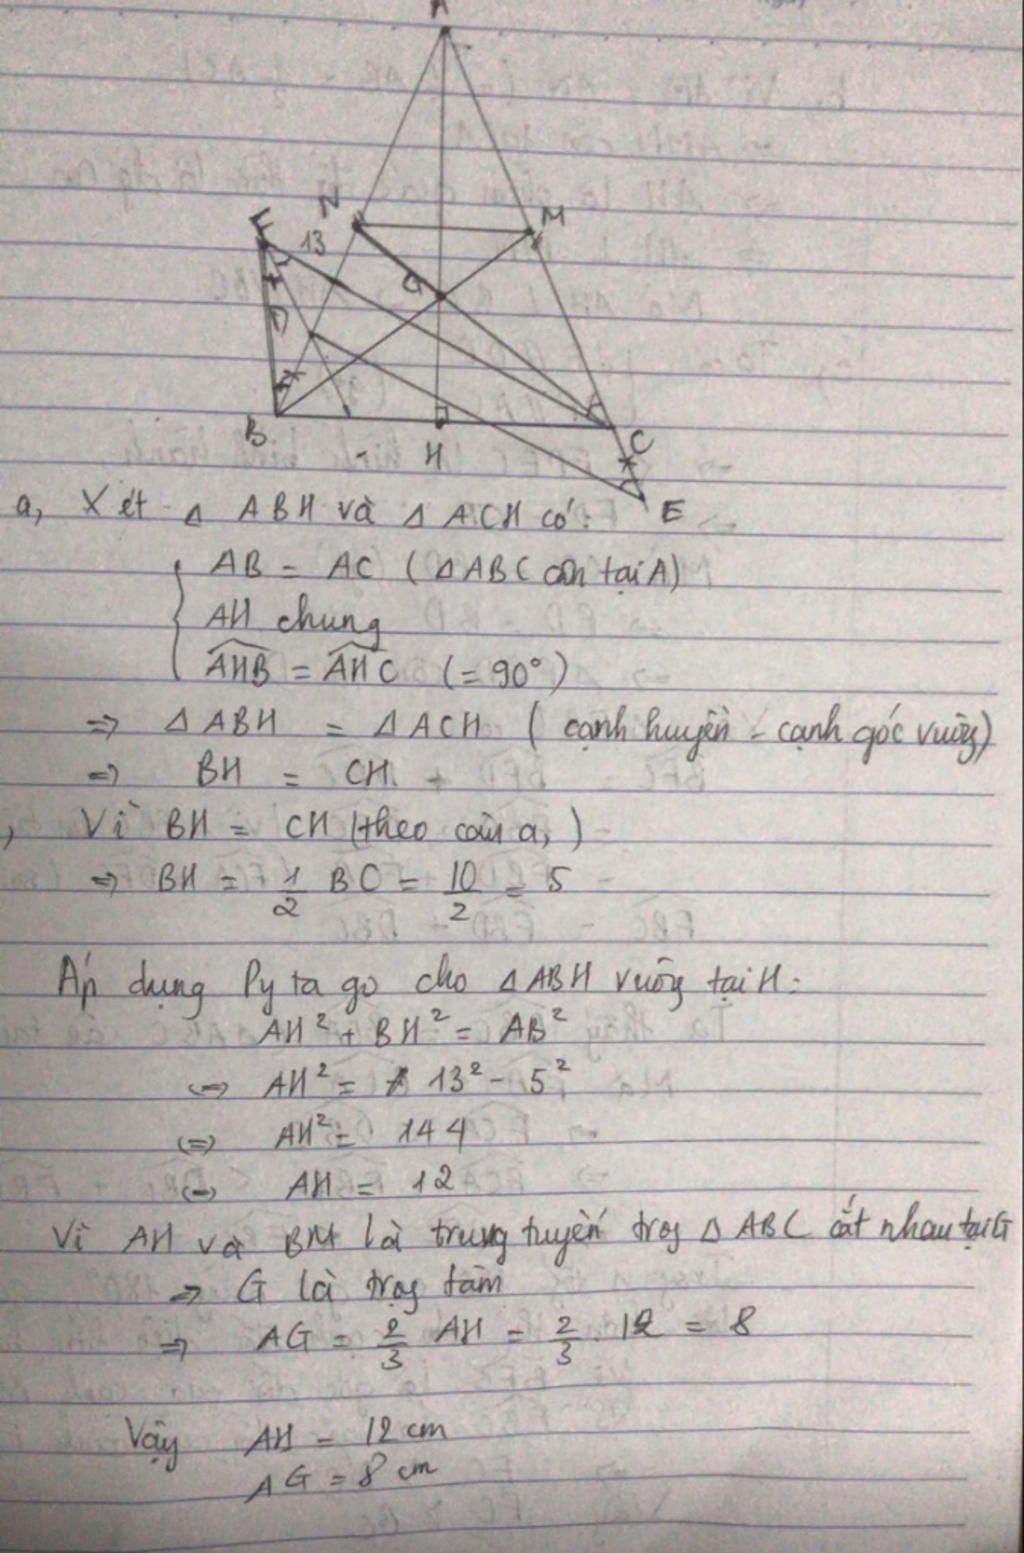 A
N
M
F
13
G
D
B
H
C
E
a, Xét Δ ABH và Δ ACH có:
AB = AC (ΔABC cân tại A)
AH chung
AHB = AHC (= 90°)
=> Δ ABH = Δ ACH ( cạnh huyền - cạnh góc vuông)
=> BH = CH
, Vì BH = CH (theo câu a, )
=> BH = 1/2 BC = 10/2 = 5
Áp dụng Py ta go cho ΔABH vuông tại H:
AH² + BH² = AB²
<=> AH² = 13² - 5²
<=> AH² = 144
<=> AH = 12
Vì AH và BM là trung tuyến trog Δ ABC cắt nhau tại G
=> G là trọg tâm
=> AG = 2/3 AH = 2/3 . 12 = 8
Vậy AH = 12 cm
AG = 8 cm